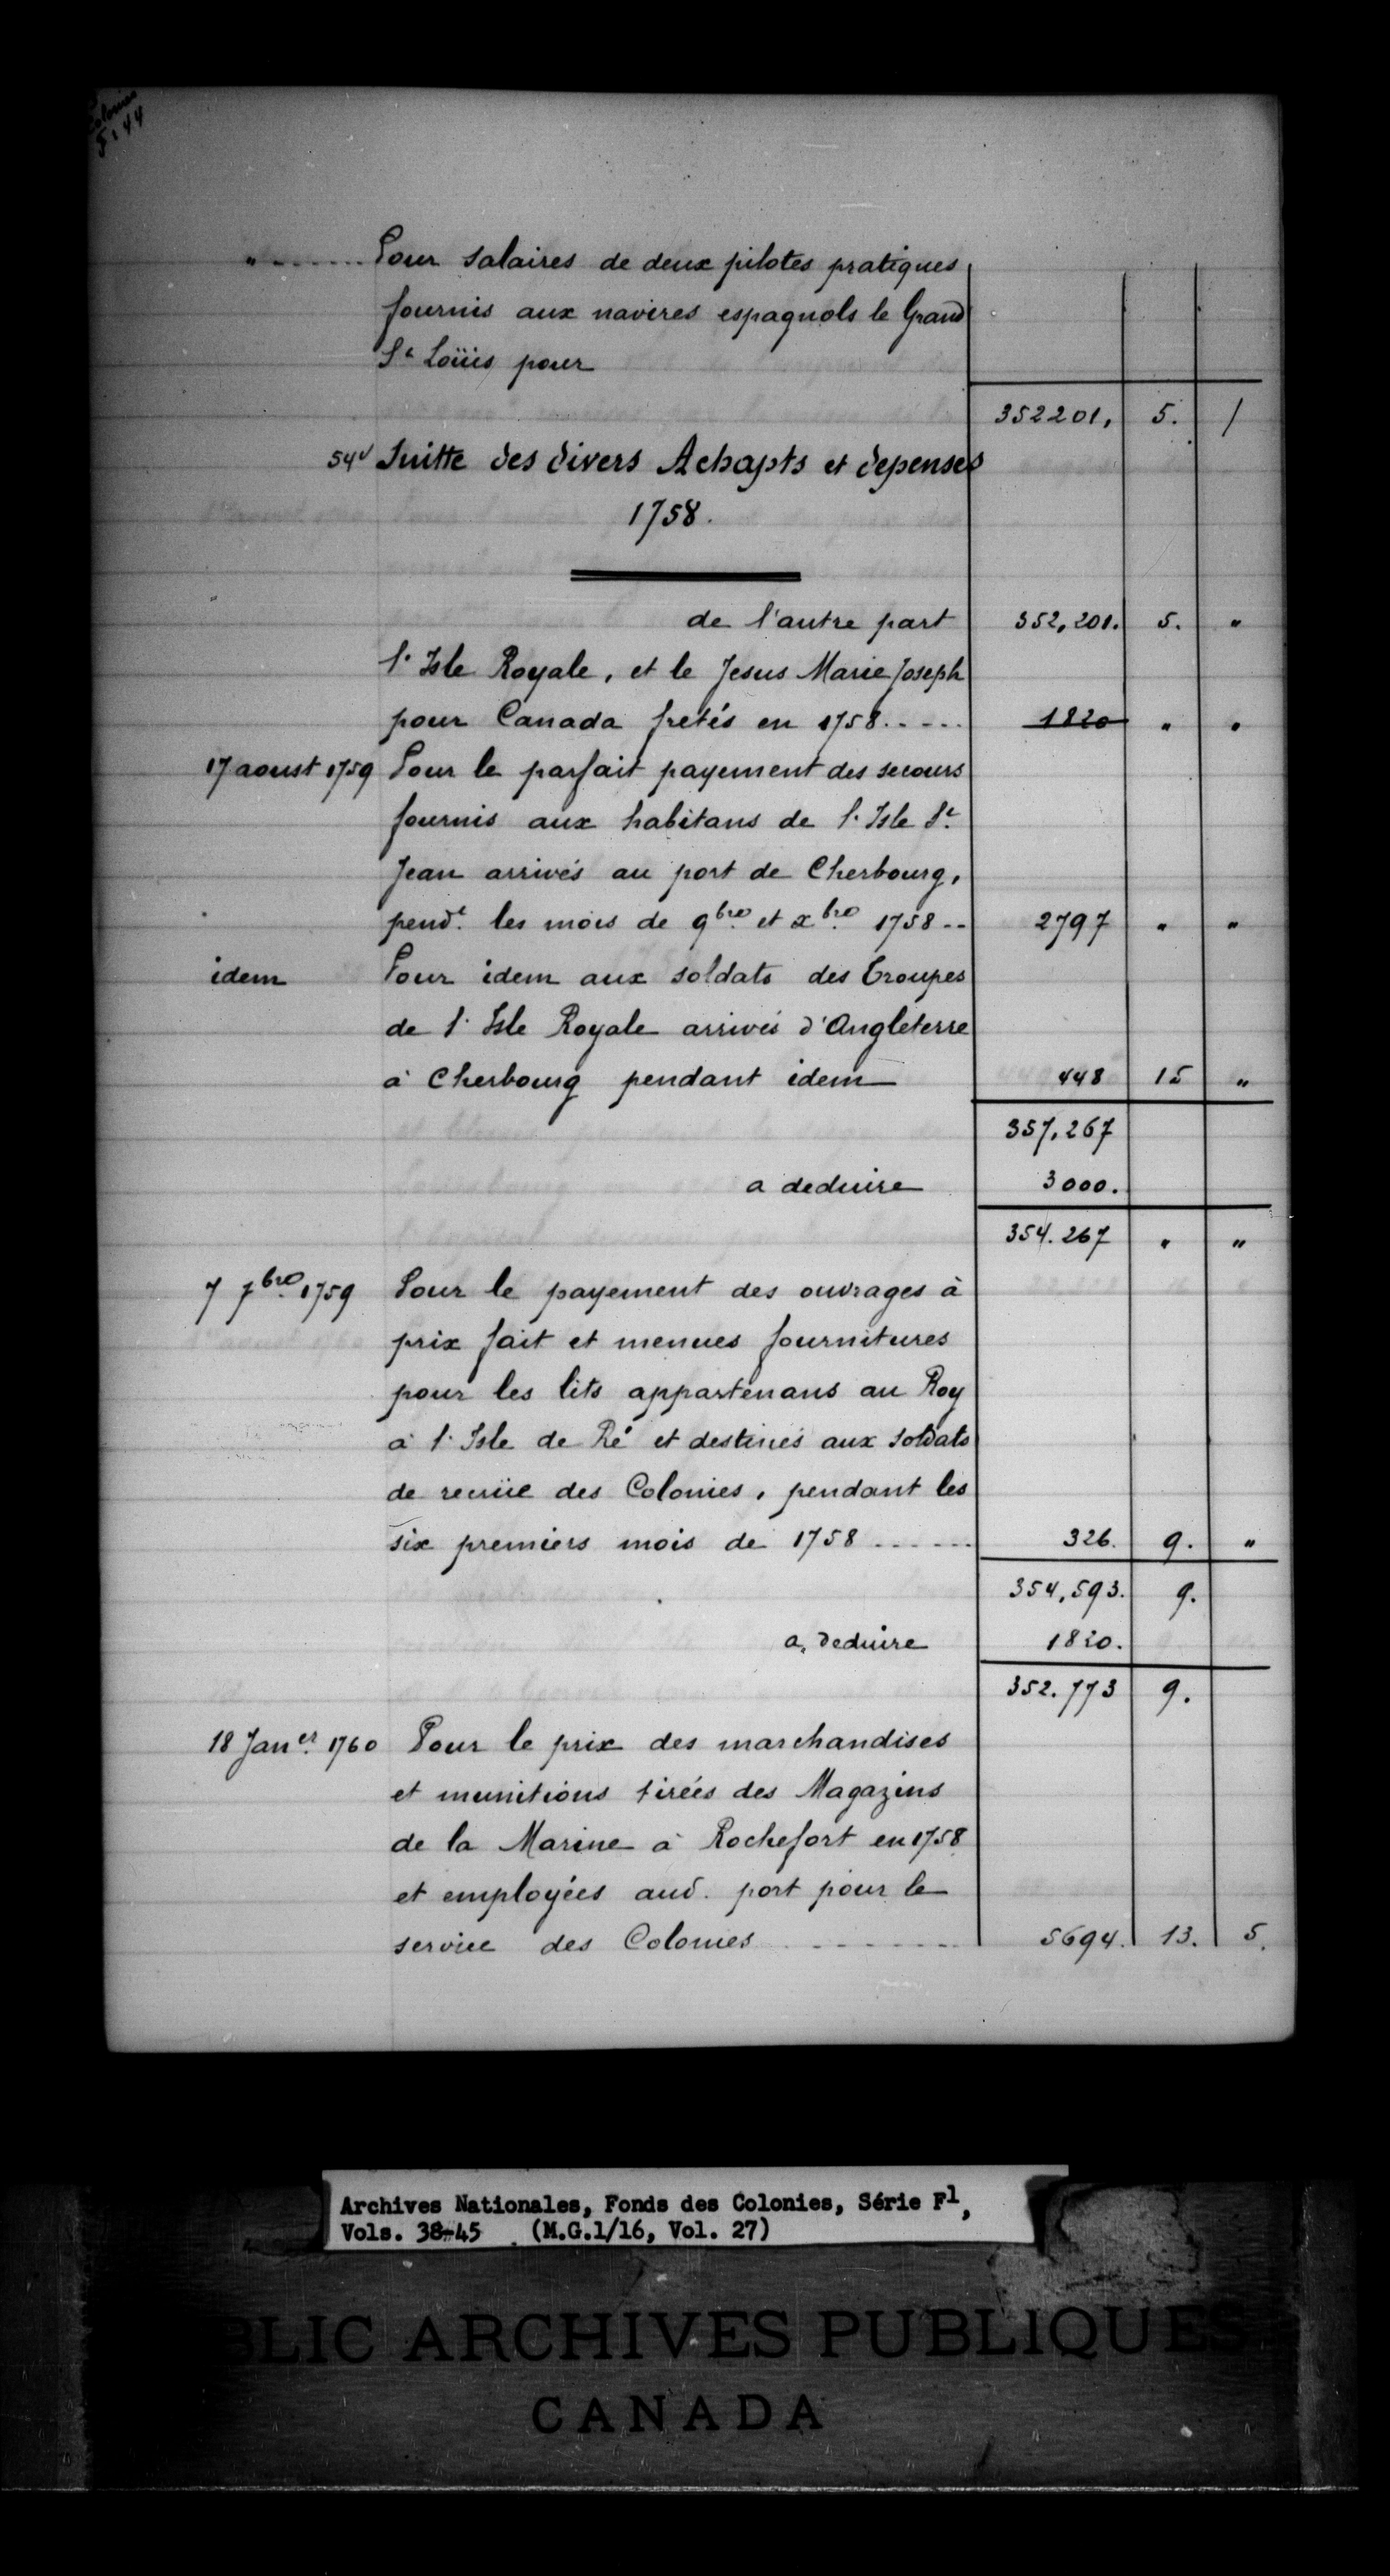 Colonies
F1 44
" ...... Pour salaires de deux pilotes pratiques
fournis aux navires espagnols le Grand
St Loüis pour
352201, 5. /
54v Suitte des divers Achapts et depenses
1758.
de l'autre part 352,201. 5. "
l'Isle Royale, et le Jesus Marie Joseph
pour Canada fretés en 1758..... 1820 " "
17 aoust 1759 Pour le parfait payement des secours
fournis aux habitans de l'Isle St.
Jean arrivés au port de Cherbourg,
pendt. les mois de 9bre. et xbre. 1758 -- 2797 " "
idem Pour idem aux soldats des Troupes
de l'Isle Royale arrivés d'Angleterre
à Cherbourg pendant idem 448 15 "
357,267
a deduire 3000.
354.267 " "
7 7bre. 1759 Pour le payement des ouvrages à
prix fait et menues fournitures
pour les lits appartenans au Roy
à l'Isle de Ré et destinés aux soldats
de recrüe des Colonies, pendant les
six premiers mois de 1758 ...... 326. 9. "
354,593. 9.
a, deduire 1820.
352.773 9.
18 Janer. 1760 Pour le prix des marchandises
et munitions tirées des Magazins
de la Marine à Rochefort en 1758
et employées aud. port pour le
service des Colonies -------- 5694. 13. 5.
Archives Nationales, Fonds des Colonies, Série F1,
Vols. 38-45 (M.G.1/16, Vol. 27)
BLIC ARCHIVES PUBLIQUES
CANADA